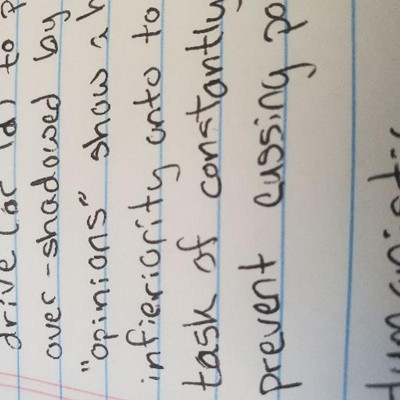 drive (or id) to p
over-shadowed by
"opinions" show a h
infieriority onto to
task of constantly
prevent cussing pa
Humanistic